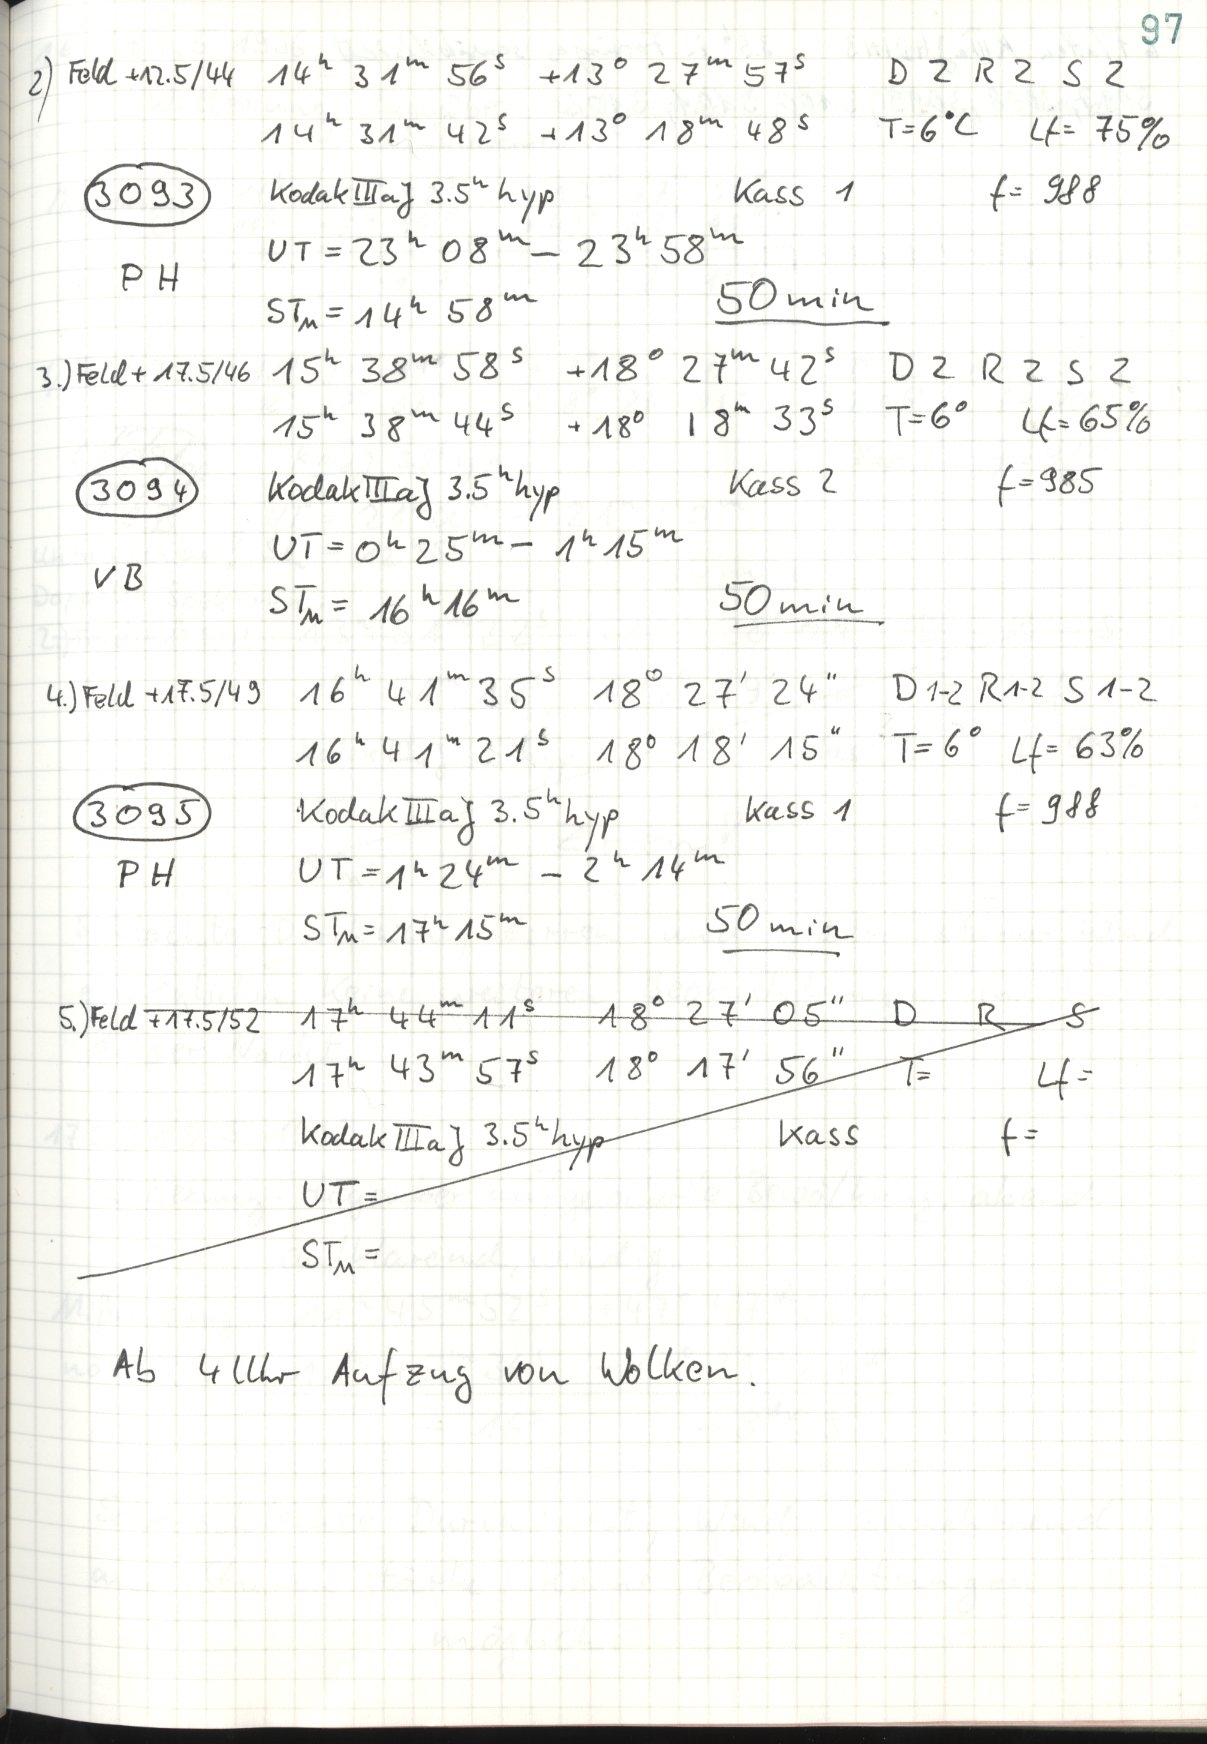 97
2) Feld +12.5/44 14ʰ 31ᵐ 56ˢ +13° 27ᵐ 57ˢ D 2 R 2 S 2
14ʰ 31ᵐ 42ˢ +13° 18ᵐ 48ˢ T=6°C Lf= 75%
3093 Kodak IIIaJ 3.5ʰ hyp Kass 1 f= 988
UT = 23ʰ 08ᵐ – 23ʰ 58ᵐ
PH
STM = 14ʰ 58ᵐ 50 min
3.) Feld + 17.5/46 15ʰ 38ᵐ 58ˢ +18° 27ᵐ 42ˢ D 2 R 2 S 2
15ʰ 38ᵐ 44ˢ +18° 18ᵐ 33ˢ T=6° Lf= 65%
3094 Kodak IIIaJ 3.5ʰ hyp Kass 2 f=985
UT = 0ʰ 25ᵐ – 1ʰ 15ᵐ
VB
STM = 16ʰ 16ᵐ 50 min
4.) Feld +17.5/49 16ʰ 41ᵐ 35ˢ 18° 27' 24" D 1-2 R 1-2 S 1-2
16ʰ 41ᵐ 21ˢ 18° 18' 15" T= 6° Lf= 63%
3095 Kodak IIIaJ 3.5ʰ hyp Kass 1 f= 988
PH UT = 1ʰ 24ᵐ – 2ʰ 14ᵐ
STM = 17ʰ 15ᵐ 50 min
5.) Feld +17.5/52 17ʰ 44ᵐ 11ˢ 18° 27' 05" D R S
17ʰ 43ᵐ 57ˢ 18° 17' 56" T= Lf=
Kodak IIIaJ 3.5ʰ hyp Kass f=
UT =
STM =
Ab 4 Uhr Aufzug von Wolken.